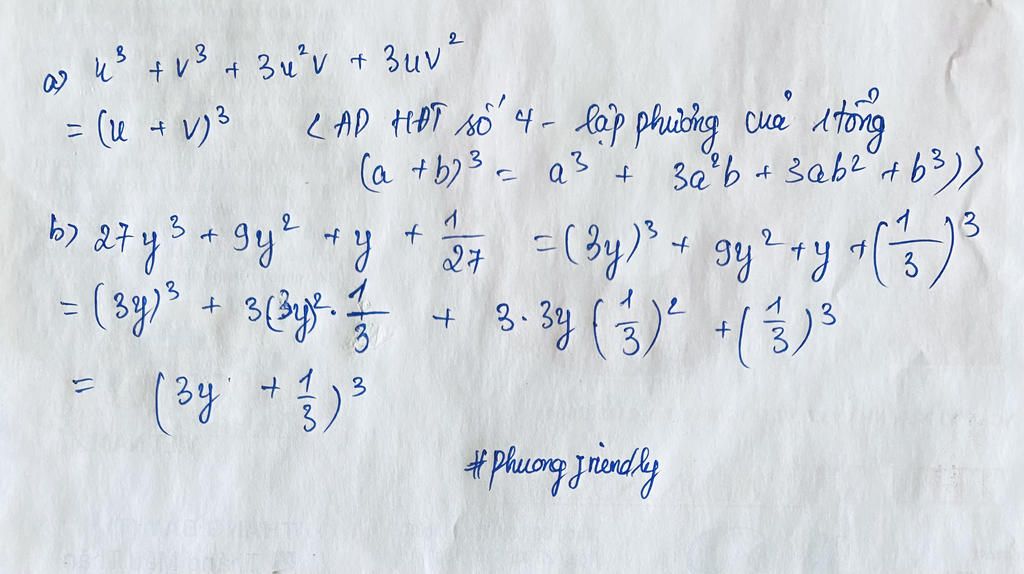 a) u³ + v³ + 3u²v + 3uv²
= (u + v)³ < AD HĐT số 4 - lập phương của 1 tổng
(a + b)³ = a³ + 3a²b + 3ab² + b³)>
b) 27y³ + 9y² + y + 1/27 = (3y)³ + 9y² + y + (1/3)³
= (3y)³ + 3(3y)² · 1/3 + 3 · 3y (1/3)² + (1/3)³
= (3y + 1/3)³
#phuong friendly